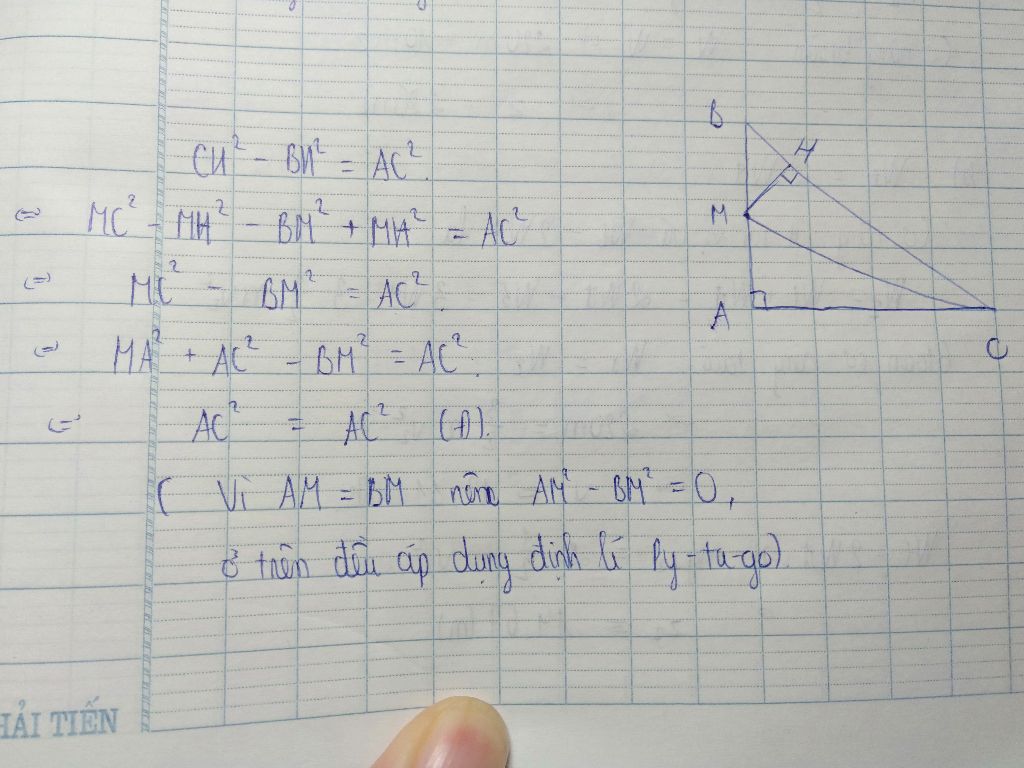 CH² - BH² = AC².
⇔ MC² - MH² - BM² + MH² = AC²
⇔ MC² - BM² = AC².
⇔ MA² + AC² - BM² = AC².
⇔ AC² = AC² (Đ).
( Vì AM = BM nên AM² - BM² = 0,
ở trên đều áp dụng định lí Py-ta-go)
B
H
M
A
C
HẢI TIẾN